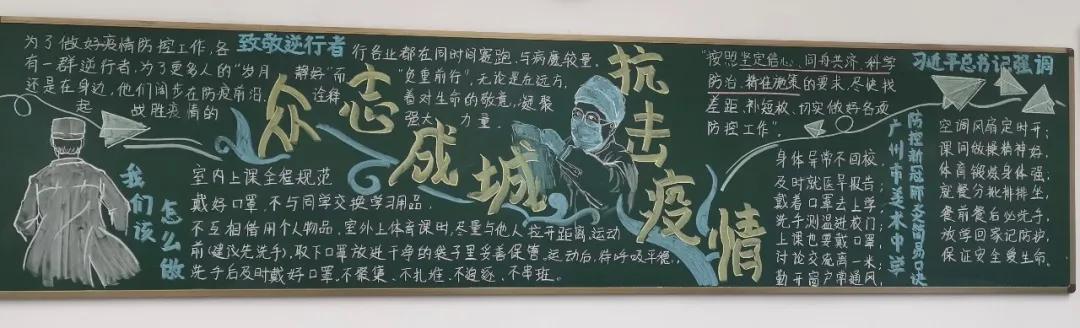 致敬逆行者
为了做好疫情防控工作,各
行各业都在同时间赛跑,与病魔较量。
有一群逆行者,为了更多人的“岁月
静好”而
“负重前行”,无论是在远方,
还是在身边,他们阔步在防疫前沿,
诠释
着对生命的敬意,凝聚
起
战胜疫情的
强大
力量。
众志成城
抗击疫情
“按照坚定信心、同舟共济、科学
防治、精准施策的要求,尽快找
差距、补短板,切实做好各项
防控工作”。
习近平总书记强调
我们该
怎么做
室内上课全程规范
戴好口罩,不与同学交换学习用品,
不互相借用个人物品,室外上体育课时,尽量与他人拉开距离,运动
前(建议先洗手),取下口罩放进干净的袋子里妥善保管,运动后,待呼吸平缓,
洗手后及时戴好口罩,不聚集、不扎堆、不追逐、不串班。
身体异常不回校,
及时就医早报告;
戴着口罩去上学,
洗手测温进校门;
上课也要戴口罩,
讨论交流离一米;
勤开窗户常通风,
广州市美术中学
防控新冠师生简易口诀
空调风扇定时开;
课间做操精神好,
体育锻炼身体强;
就餐分批排排坐,
餐前餐后必洗手,
放学回家记防护,
保证安全爱生命。